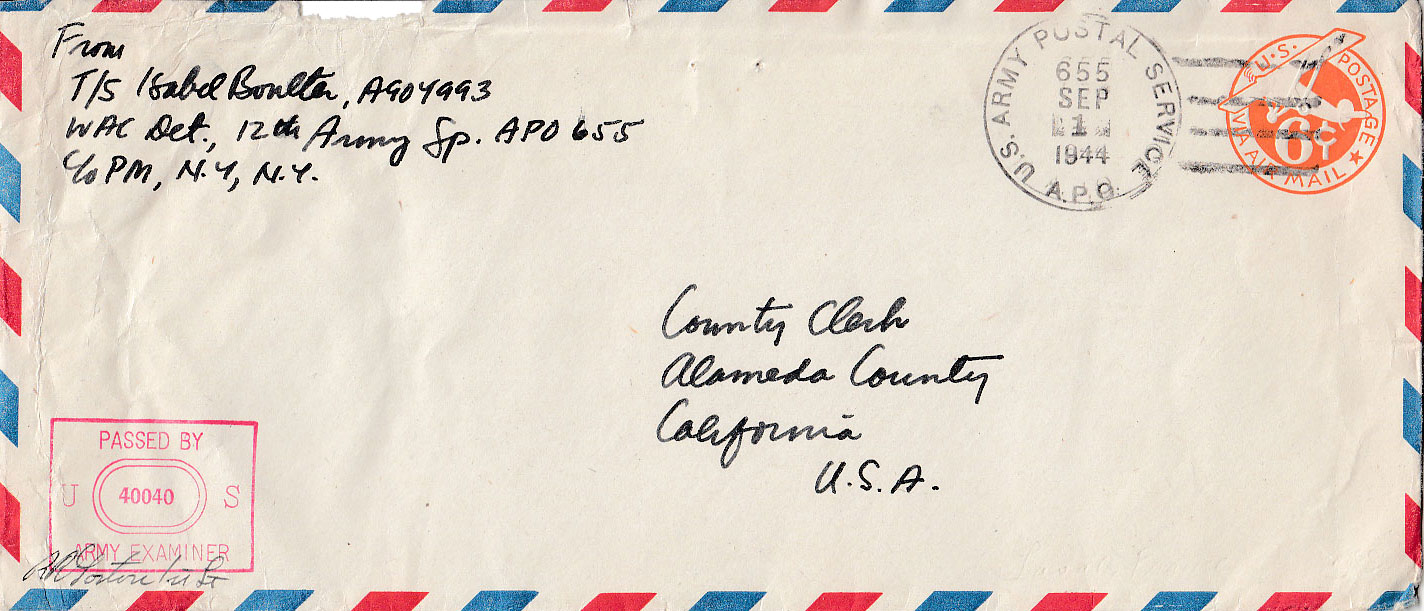 From
T/5 Isabel Boulter, A904993
WAC Det., 12th Army Gp. APO 655
c/o PM, N.Y., N.Y.
U.S. ARMY POSTAL SERVICE
655
SEP
1
1944
A.P.O.
U.S. POSTAGE
VIA AIR MAIL
6¢
County Clerk
Alameda County
California
U.S.A.
PASSED BY
U 40040 S
ARMY EXAMINER